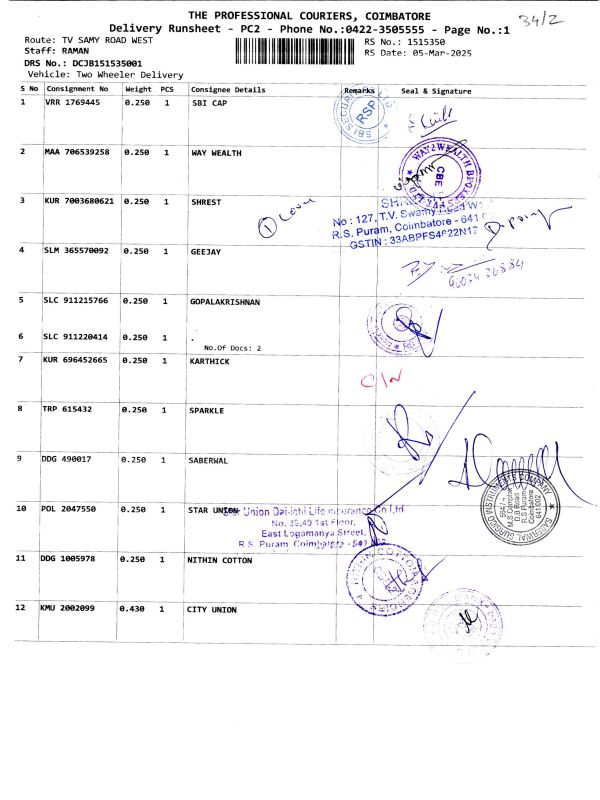 THE PROFESSIONAL COURIERS, COIMBATORE
34/2
Delivery Runsheet - PC2 - Phone No.:0422-3505555 - Page No.:1
Route: TV SAMY ROAD WEST
RS No.: 1515350
Staff: RAMAN
RS Date: 05-Mar-2025
DRS No.: DCJB151535001
Vehicle: Two Wheeler Delivery
S No Consignment No Weight PCS Consignee Details Remarks Seal & Signature
1 VRR 1769445 0.250 1 SBI CAP
RSP
2 MAA 706539258 0.250 1 WAY WEALTH
WAY2WEALTH
CBE
3 KUR 7003680621 0.250 1 SHREST
No : 127, T.V. Swamy Road W
R.S. Puram, Coimbatore - 641
GSTIN : 33ABPFS4622N1Z
4 SLM 365570092 0.250 1 GEEJAY
5 SLC 911215766 0.250 1 GOPALAKRISHNAN
6 SLC 911220414 0.250 1 .
No.Of Docs: 2
7 KUR 696452665 0.250 1 KARTHICK
8 TRP 615432 0.250 1 SPARKLE
9 DDG 490017 0.250 1 SABERWAL
SABERWAL SURGICO INSTRUMENTS COMPANY
R.S Puram
Coimbatore
641 002
10 POL 2047550 0.250 1 STAR UNION
Star Union Dai-ichi Life Insurance Co Ltd
No. 39,40 1st Floor,
East Logamanya Street,
R.S. Puram Coimbatore - 641 002
11 DDG 1005978 0.250 1 NITHIN COTTON
12 KMU 2002099 0.430 1 CITY UNION